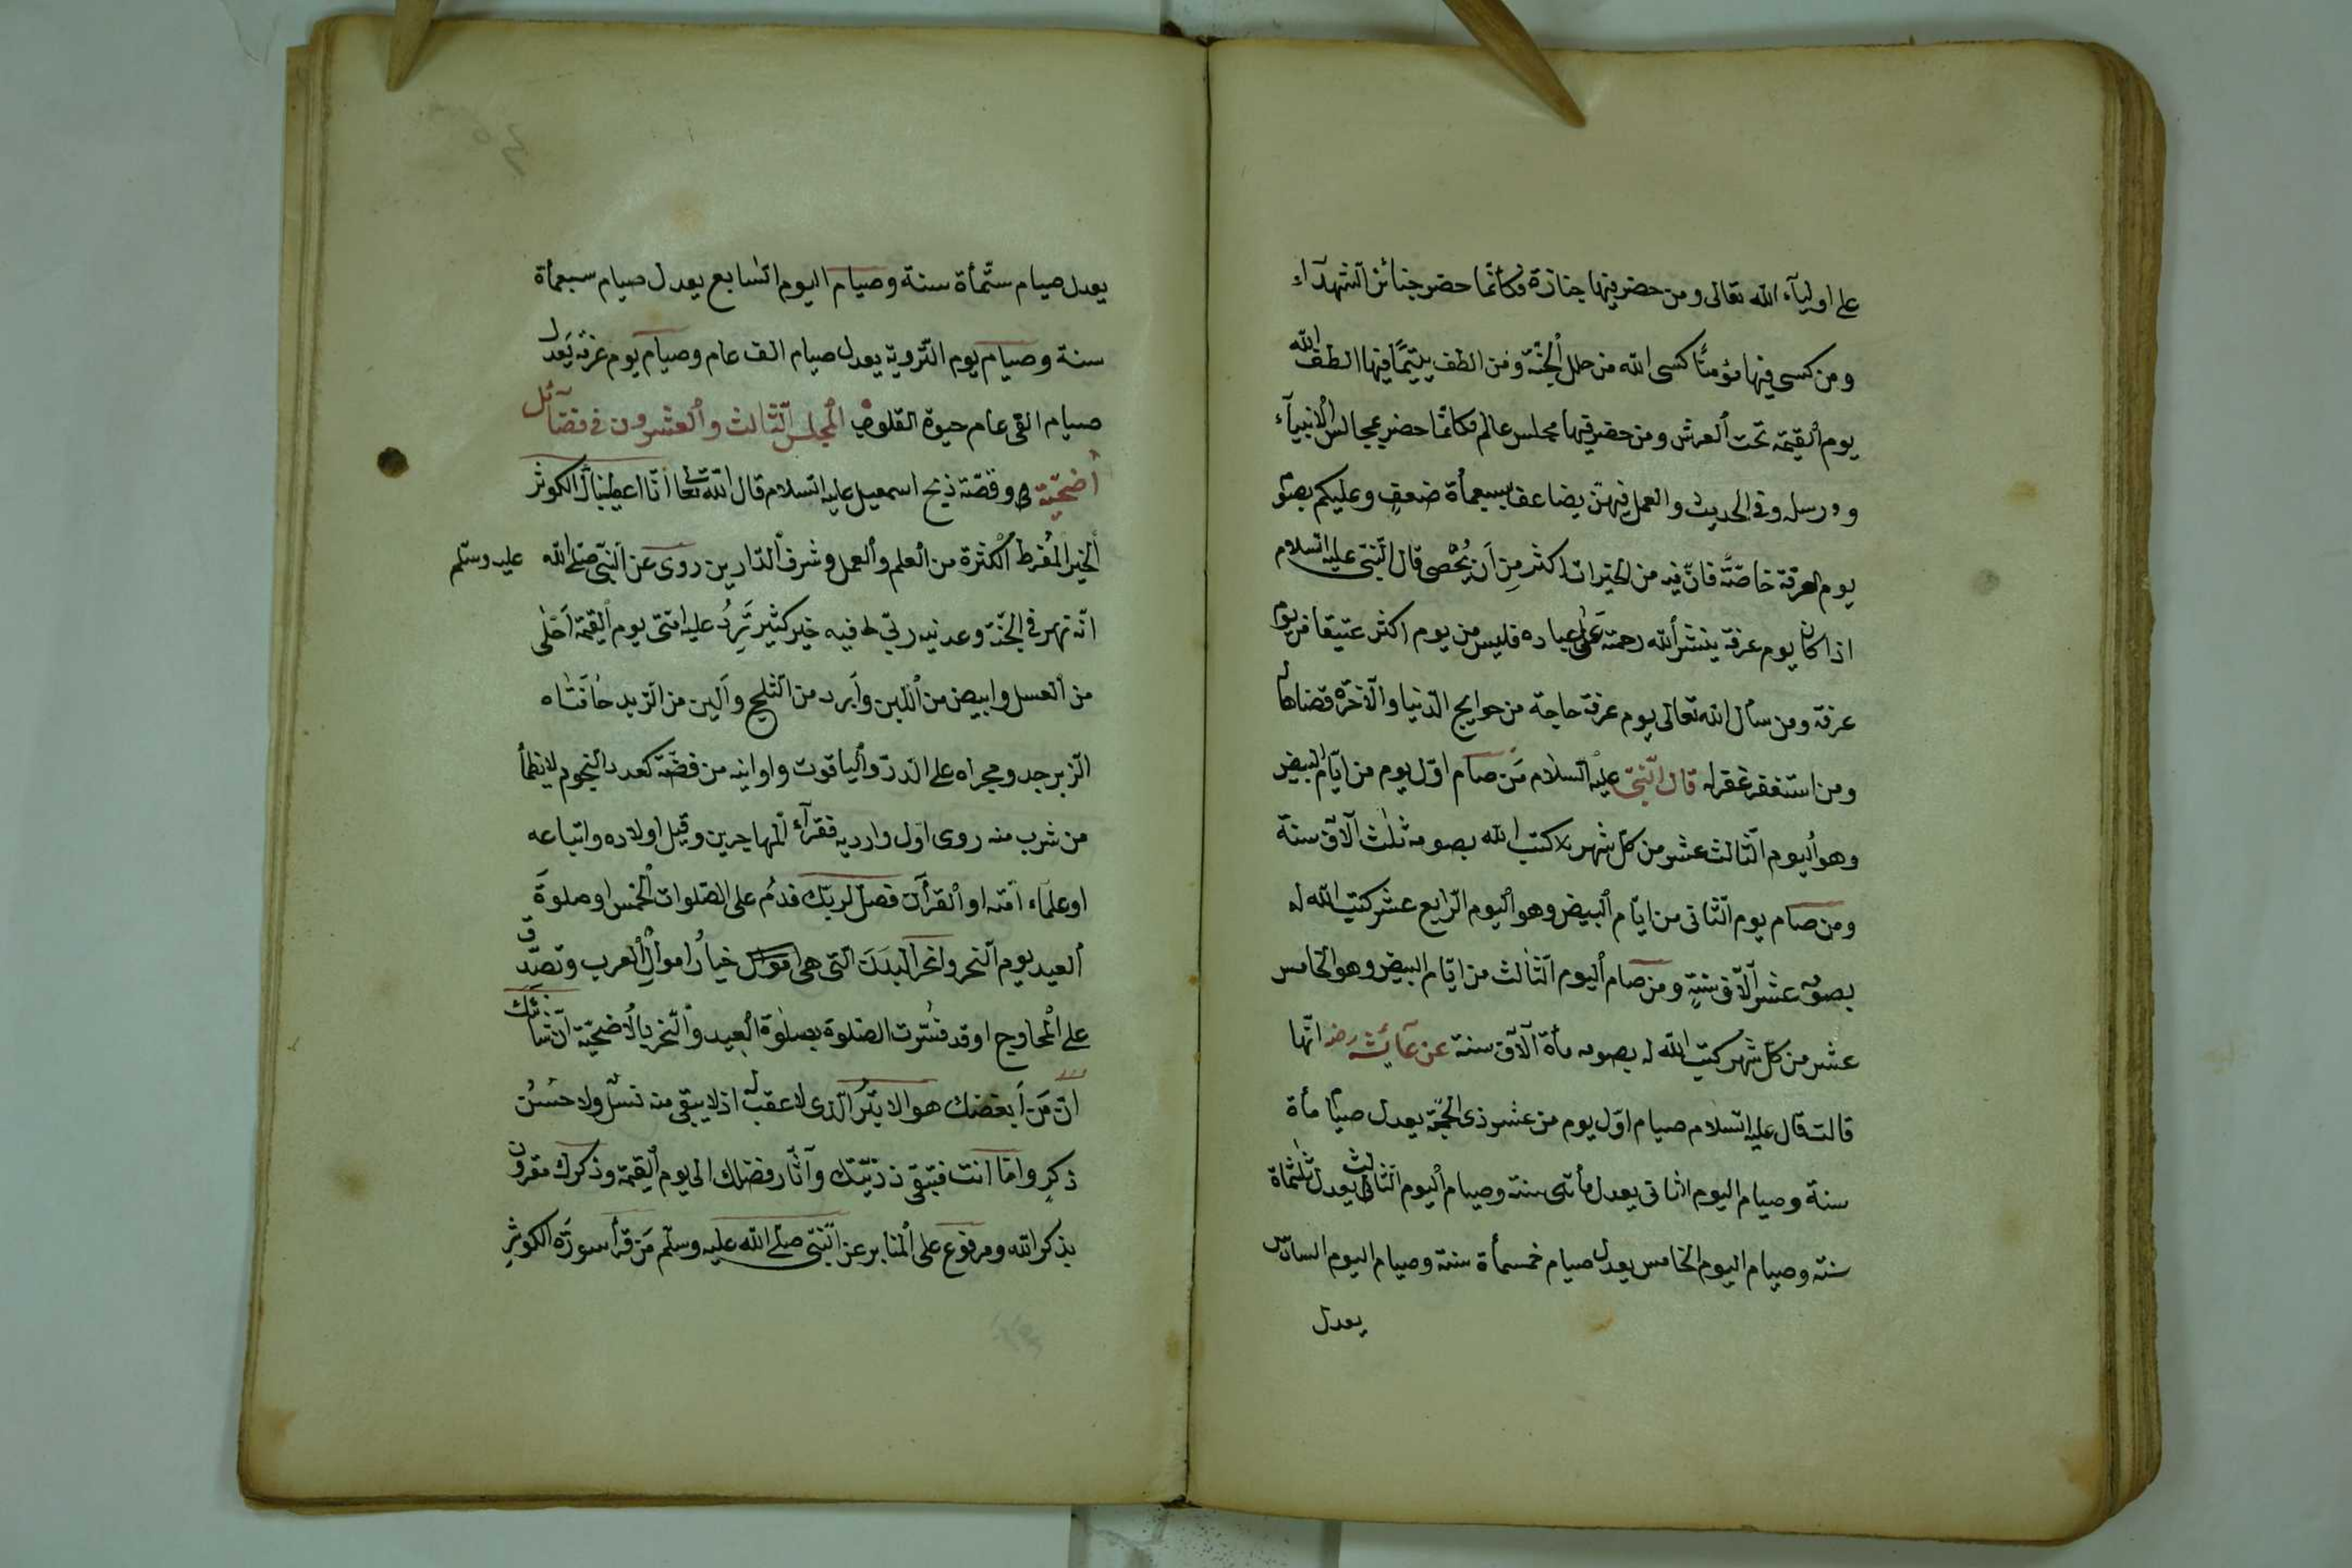 على اوليآء الله تعالى ومن حضر فيها جنازة فكانّما حضر جنائز الشّهدآء
ومن كسى فيها مؤمنًا كسى الله من حلل الجنّة ومن الطف يتيمًا فيها الطف الله
يوم القيمة تحت العرش ومن حضر فيها مجلس عالم فكانّما حضر مجالس الانبيآء
و ورسله وفى الحديث والعمل فيهنّ يضاعف بسبعمأة ضعفٍ وعليكم بصوم
يوم العرفة خاصّة فانّ فيه من الخيرات اكثر مِن اَن يُحْصى قال النّبى عليه السلام
اذا كان يوم عرفة ينشر الله رحمته على عباده فليس من يوم اكثر عتيقا من يوم
عرفة ومن سأل الله تعالى يوم عرفة حاجة من حوايج الدّنيا والآخرة قضاها له
ومن استغفر غفر له قال النّبىّ عليه السّلام مَن صام اوّل يوم من ايّام البيض
وهو اليوم الثّالث عشر من كلّ شهر كتب الله بصومه ثلث آلاف سنة
ومن صام يوم الثّانى من ايّام البيض وهو اليوم الرّابع عشر كتب الله له
بصومه عشر آلاف سنةٍ ومن صام اليوم الثّالث من ايّام البيض وهو الخامس
عشر من كلّ شهر كتب الله له بصومه مأة آلاف سنة عن عآئشه رضه انّها
قالت قال عليه السّلام صيام اوّل يوم من عشر ذى الحجّة يعدل صيام مأة
سنة وصيام اليوم الثانى يعدل مأتى سنة وصيام اليوم الثالث يعدل ثلثمأة
سنة وصيام اليوم الخامس يعدل صيام خمسمأة سنة وصيام اليوم السادس
يعدل
يعدل صيام ستّمأة سنة وصيام اليوم السّابع يعدل صيام سبعمأة
سنة وصيام يوم التّروية يعدل صيام الف عام وصيام يوم عرفة يَعدل
صيام الفى عام حيوة القلوب المجلس الثّالث والعشرون فى فضآئل
أضحيّة وقصّة ذبح اسمعيل عليه السّلام قال الله تعا انّا اعطيناك الكوثر
الخير المُفرط الكثرة من العلم والعمل وشرف الدّارين روى عن النّبى صلّى الله عليه وسلّم
انّه نهر فى الجنّة وعدنيه ربّى فيه خير كثير تَرِدُ عليه امّتى يوم القيمة اَحْلٰى
من العسل وابيض من اللبن واَبرد من الثلج واَلين من الزبد حافتاه
الزّبرجد ومجراه على الدرّ والياقوت واوانيه من فضّة كعدد النجوم لا يظمأ
من شرب منه روى اوّل وارديه فقرآء المهاجرين وقيل اولاده واتباعه
او علماء امّته او القرآن فصلّ لربّك فدُم على الصّلوات الخمس او صلوةَ
العيد يوم النّحر وانحر البدنَ الّتى هى خيارُ اموال العرب وتصدّق
على المحاويج او قد فسّرت الصّلوة بصلوة العيد والنّحر بالاُضحيّة انّ شانئك
انّ مَن اَبغضك هو الابتَرُ الّذى لا عقب له اذ لا يبقى منه نسلٌ ولا حسنُ
ذكرٍ وامّا انت فتبقى ذريّتك وآثار فضلك الى يوم القيمة وذكرك مقرون
بذكر الله ومرفوع على المنابر عن النّبى صلّى الله عليه وسلّم مَن قرأ سورة الكوثر